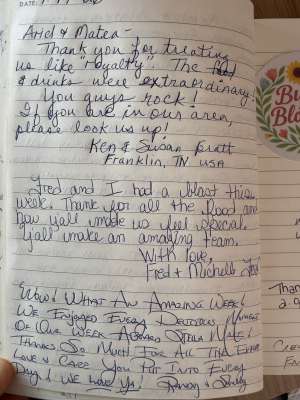 DATE:
Ariel & Matea -
Thank you for treating
us like "royalty". The food
& drinks were extraordinary.
You guys rock!
If you are in our area,
please look us up!
Ken & Susan Pratt
Franklin, TN USA
Fred and I had a blast this
week. Thank for all the food and
how y'all made us feel special.
Y'all make an amazing team.
With love,
Fred & Michelle
Wow! What An Amazing Week!
We Enjoyed Every Delicious Minute
Of Our Week Aboard Stella Mate!
Thanks So Much For All The Extra
Love & Care You Put Into Every
Day! We Love Ya!
Bu
Blo
Than